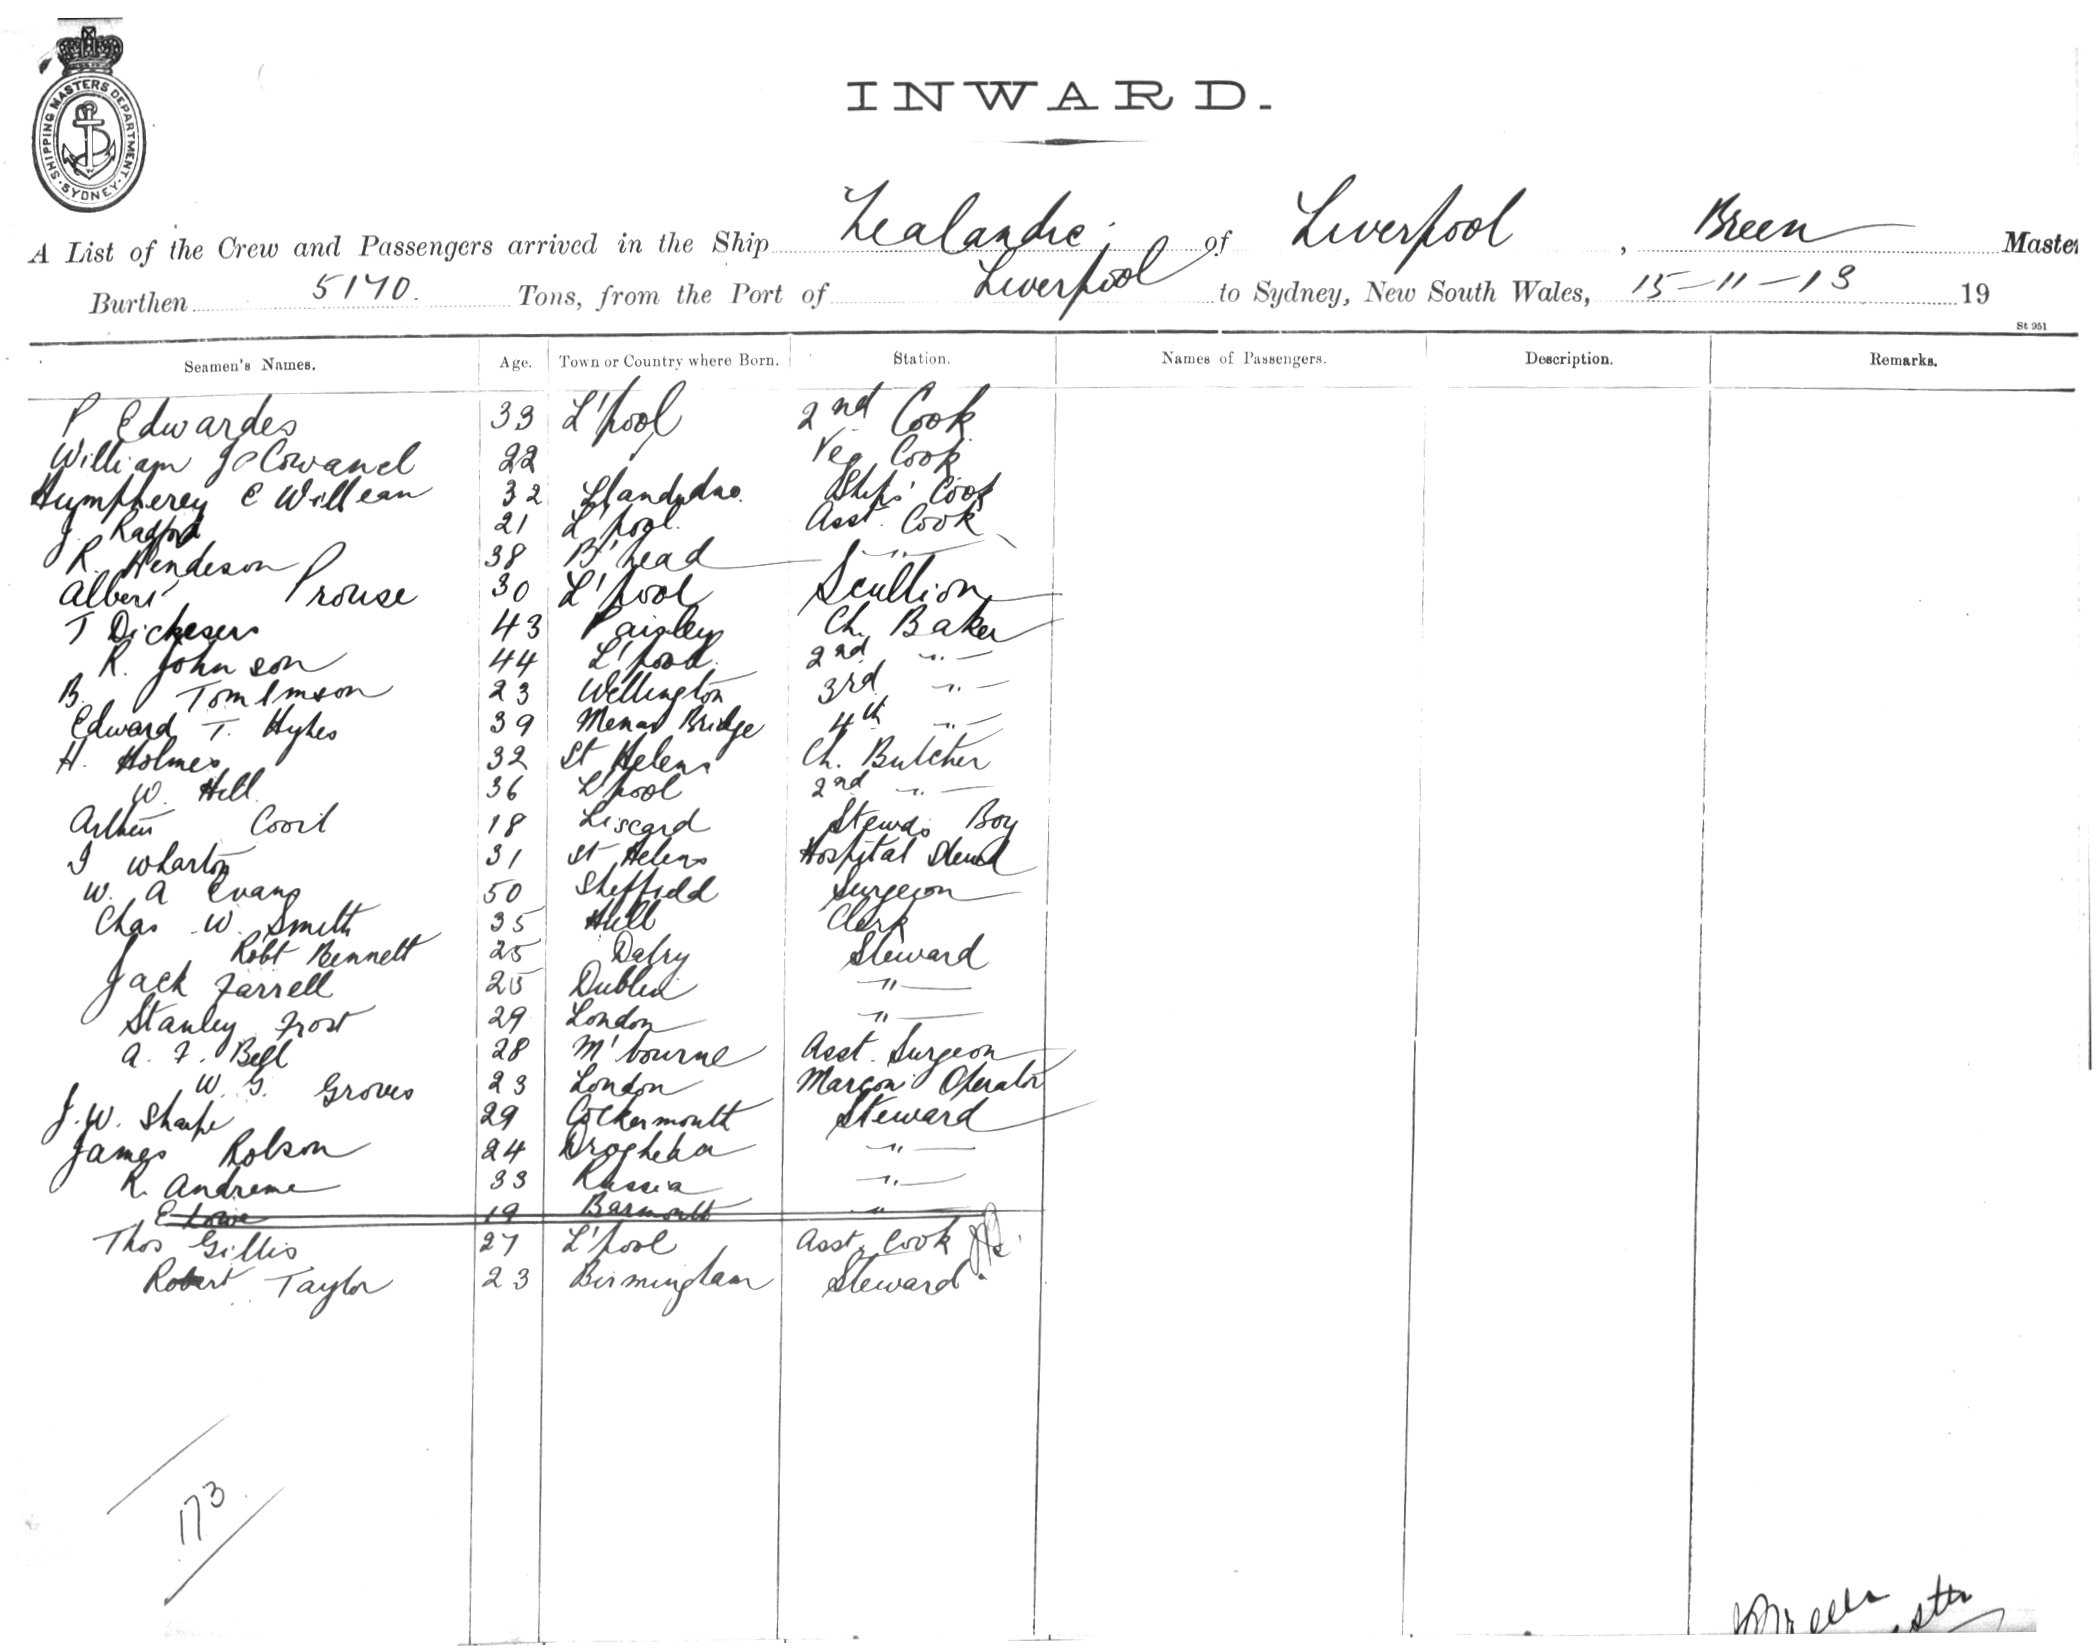 SHIPPING MASTERS DEPARTMENT
SYDNEY
INWARD.
A List of the Crew and Passengers arrived in the Ship Zealandic of Liverpool, Breen Master
Burthen 5140. Tons, from the Port of Liverpool to Sydney, New South Wales, 15-11-13 19
St 951
Seamen's Names. Age. Town or Country where Born. Station. Names of Passengers. Description. Remarks.
P Edwardes 33 L'pool 2nd Cook
William 22 Veg Cook
Humpherey E 32 Llandudno. Ships' Cook
J. 21 L'pool. Asst. Cook
R. Hendeson 38 B'head "
Albert Prouse 30 L'pool Scullion
T 43 Paisley Ch. Baker
R. Johnson 44 L'pool. 2nd "
B. Tomlinson 23 Wellington 3rd "
Edward T. Hykes 39 Menai Bridge 4th "
H. Holmes 32 St Helens Ch. Butcher
W. Hill 36 L'pool 2nd "
Arthur 18 Liscard Stewds Boy
Wharton 31 St Helens Hospital Stewd
W. A Evans 50 Sheffield Surgeon
Chas W. Smith 35 Hull Clerk
Robt Bennett 25 Dalry Steward
Jack Farrell 25 Dublin "
Stanley Frost 29 London "
A. F. Bell 28 M'bourne Asst. Surgeon
W. G. Groves 23 London Marconi Operator
J. W. Sharpe 29 Cockermouth Steward
James Robson 24 Drogheda "
R. 33 Russia "
E Lowe 19 Barmouth "
Thos Gillis 27 L'pool Asst. Cook
Robert Taylor 23 Birmingham Steward
173
Breen